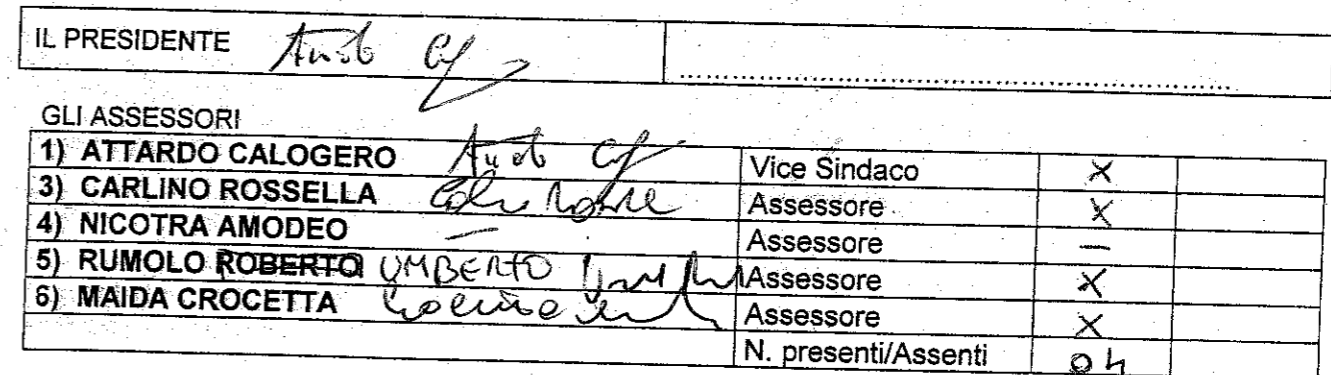 IL PRESIDENTE
........................................................................
GLI ASSESSORI
1) ATTARDO CALOGERO Vice Sindaco X
3) CARLINO ROSSELLA Assessore X
4) NICOTRA AMODEO — Assessore —
5) RUMOLO ROBERTO UMBERTO Assessore X
6) MAIDA CROCETTA Assessore X
N. presenti/Assenti 04